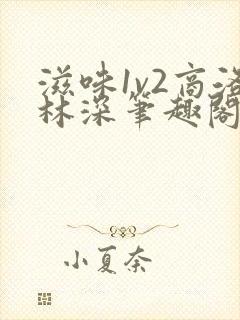 滋味1v2高洛
林深笔趣阁
小夏奈